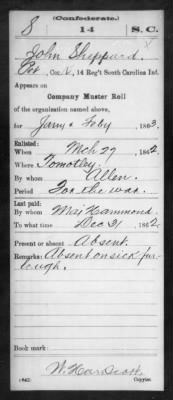 (Confederate.)
S 14 S.C.
John Sheppard
Pvt, Co. K, 14 Reg't South Carolina Inf.
Appears on
Company Muster Roll
of the organization named above,
for Jany & Feby, 1863.
Enlisted:
When Mch 27, 1862.
Where Pomotley.
By whom Allen.
Period For the war.
Last paid:
By whom Maj Hammond.
To what time Dec 31, 1862.
Present or absent Absent.
Remarks: Absent on sick fur-
lough.
Book mark:
(642) Copyist.